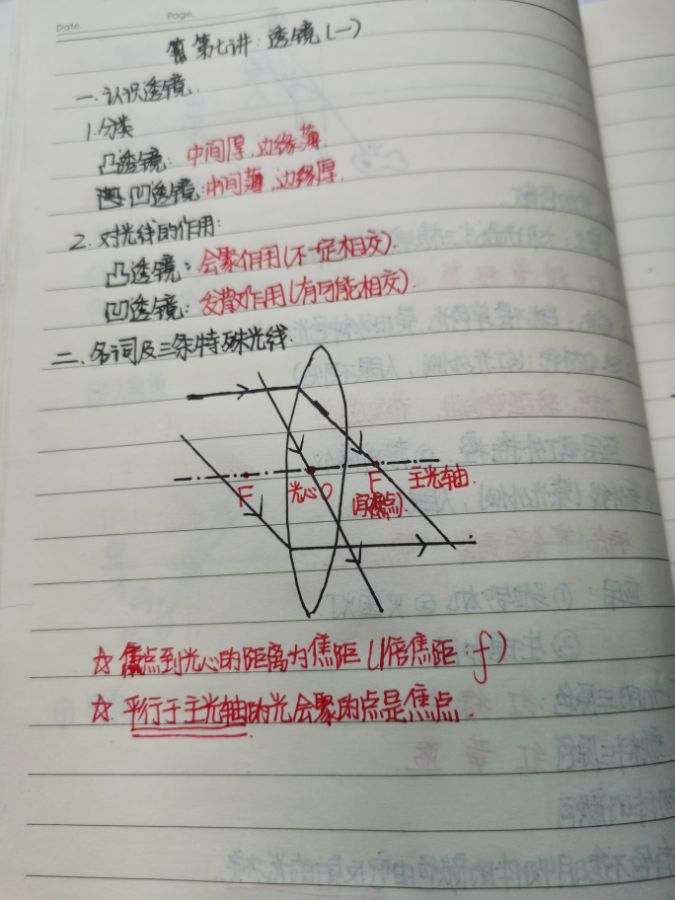 Date.
Page.
第七讲：透镜(一)
一.认识透镜.
1.分类
凸透镜：中间厚,边缘薄.
凹透镜:中间薄,边缘厚.
2.对光线的作用:
凸透镜：会聚作用(不一定相交).
凹透镜：发散作用(有可能相交).
二.名词及三条特殊光线.
F 光心O F 主光轴.
(焦点)
☆ 焦点到光心的距离为焦距(1倍焦距：f)
☆ 平行于主光轴的光会聚的点是焦点.